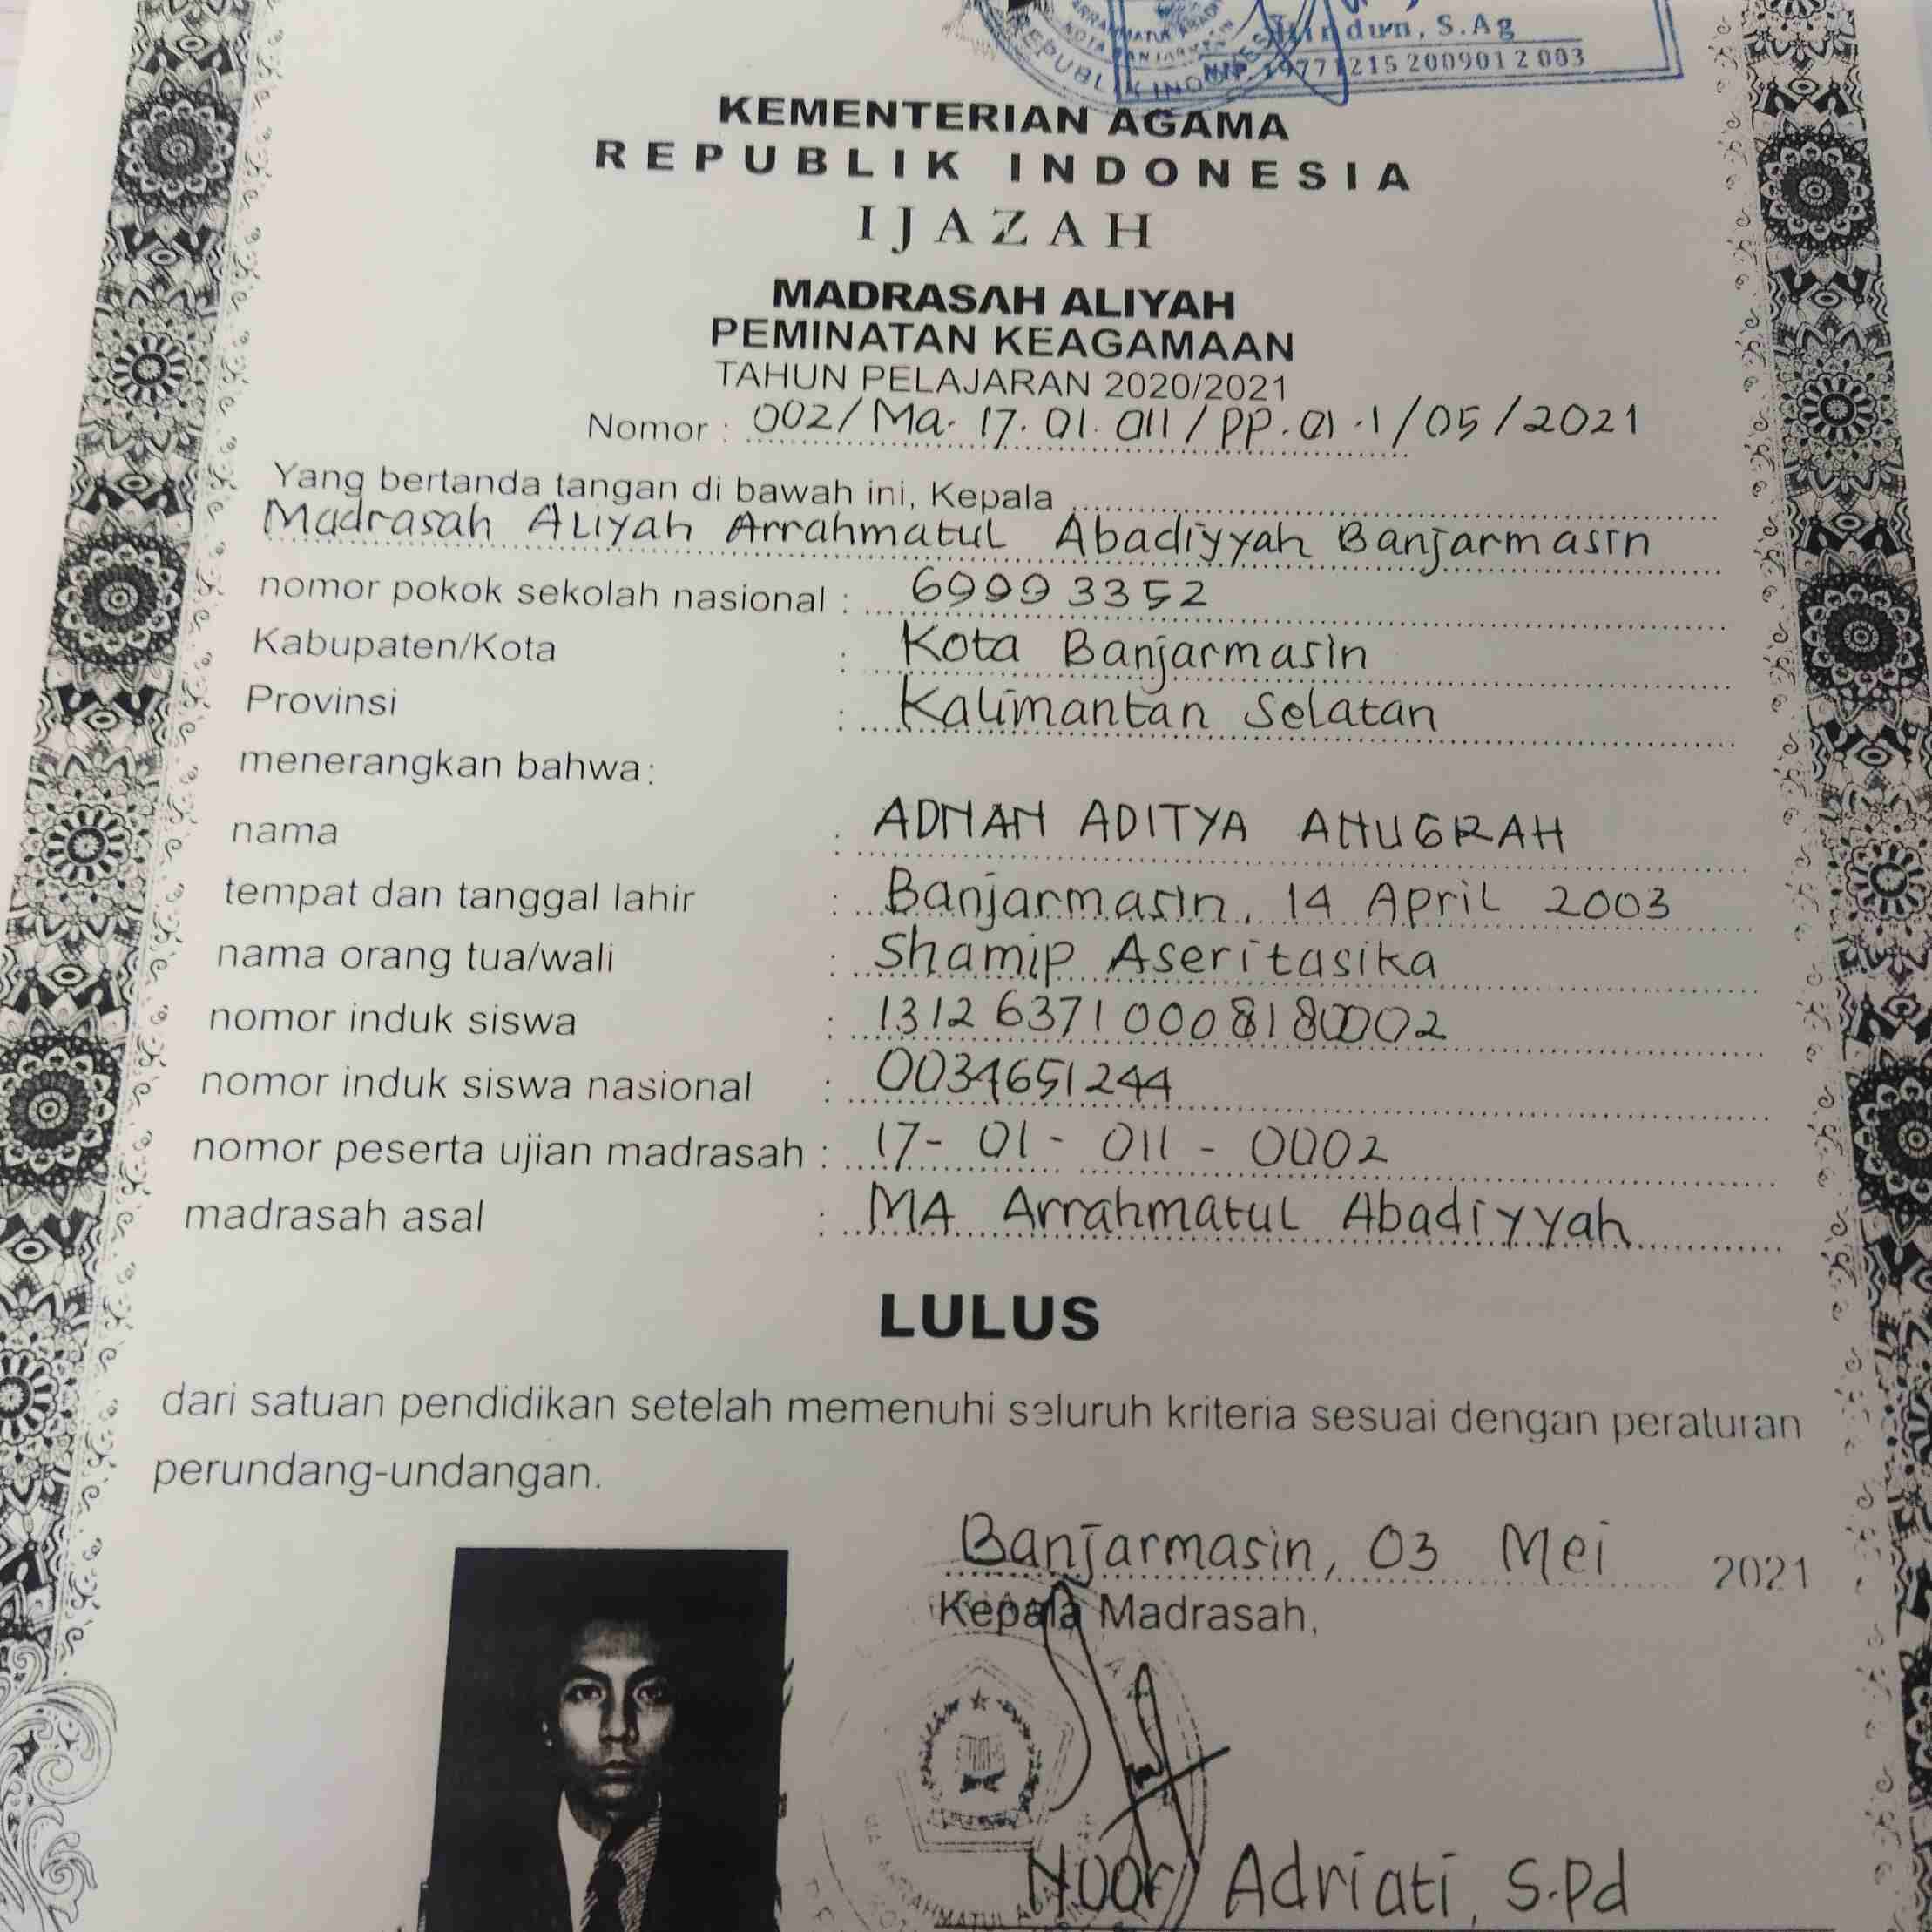 REPUBLIK INDONESIA
S.Ag
NIP. 19771215 200901 2 003
KEMENTERIAN AGAMA
REPUBLIK INDONESIA
IJAZAH
MADRASAH ALIYAH
PEMINATAN KEAGAMAAN
TAHUN PELAJARAN 2020/2021
Nomor : 002/Ma.17.01.011/PP.01.1/05/2021
Yang bertanda tangan di bawah ini, Kepala
Madrasah Aliyah Arrahmatul Abadiyyah Banjarmasin
nomor pokok sekolah nasional : 69993352
Kabupaten/Kota : Kota Banjarmasin
Provinsi : Kalimantan Selatan
menerangkan bahwa:
nama : ADNAN ADITYA ANUGRAH
tempat dan tanggal lahir : Banjarmasin, 14 April 2003
nama orang tua/wali : Shamip Aseritasika
nomor induk siswa : 131263710008180002
nomor induk siswa nasional : 0034651244
nomor peserta ujian madrasah : 17-01-011-0002
madrasah asal : MA Arrahmatul Abadiyyah
LULUS
dari satuan pendidikan setelah memenuhi seluruh kriteria sesuai dengan peraturan
perundang-undangan.
Banjarmasin, 03 Mei 2021
Kepala Madrasah,
Noor Adriati, S.Pd